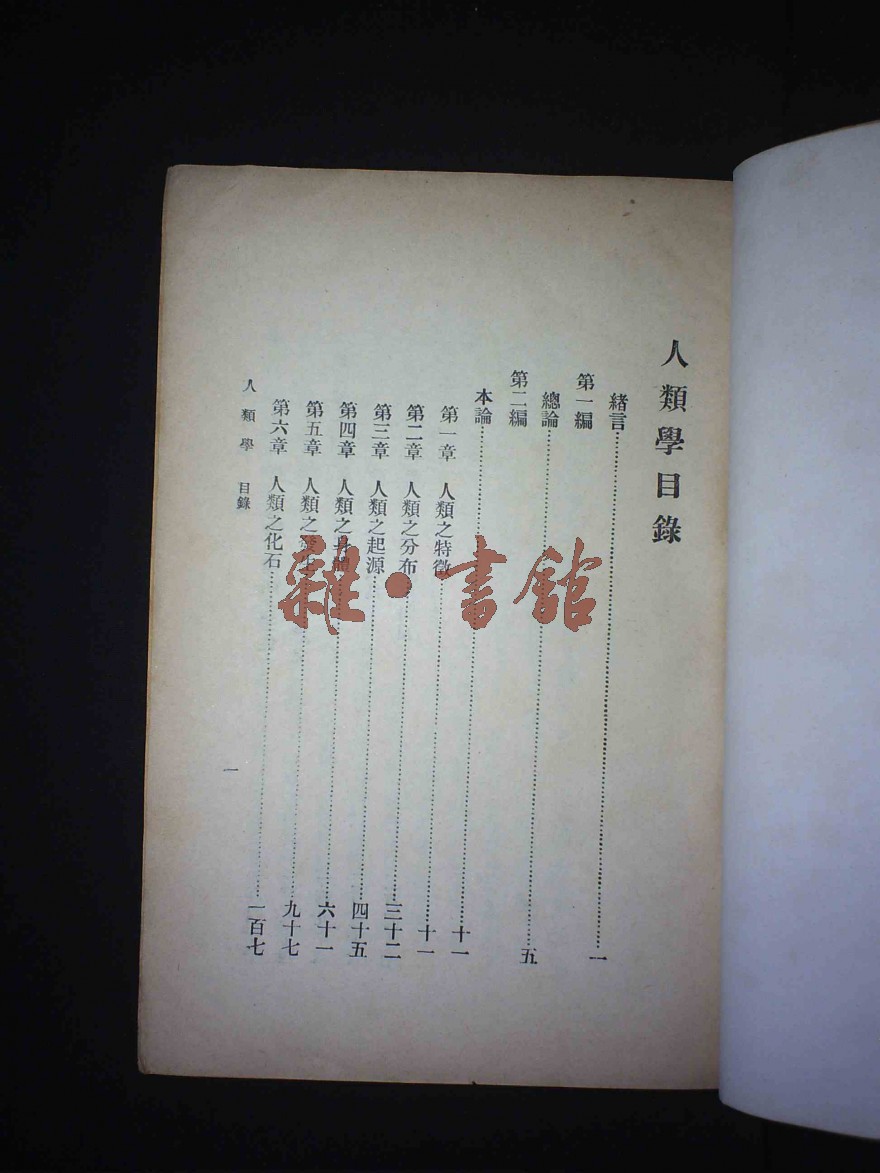 人類學目錄
緒言……一
第一編
總論……五
第二編
本論……十一
第一章 人類之特徵……十一
第二章 人類之分布……三十二
第三章 人類之起源……四十五
第四章 人類之身體……六十一
第五章 人類之……九十七
第六章 人類之化石……一百七
人類學 目錄
一
雜·書館